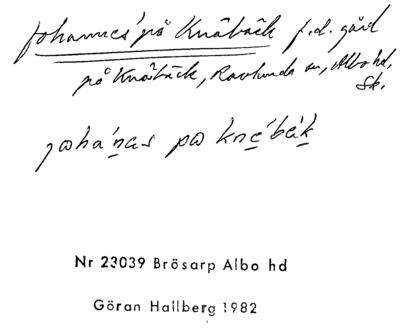 Johannes' på Knäbäck f.d. gård
på Knäbäck, Ravlunda sn, Albo hd,
Sk.
johánas på knǽbák
Nr 23039 Brösarp Albo hd
Göran Hallberg 1982